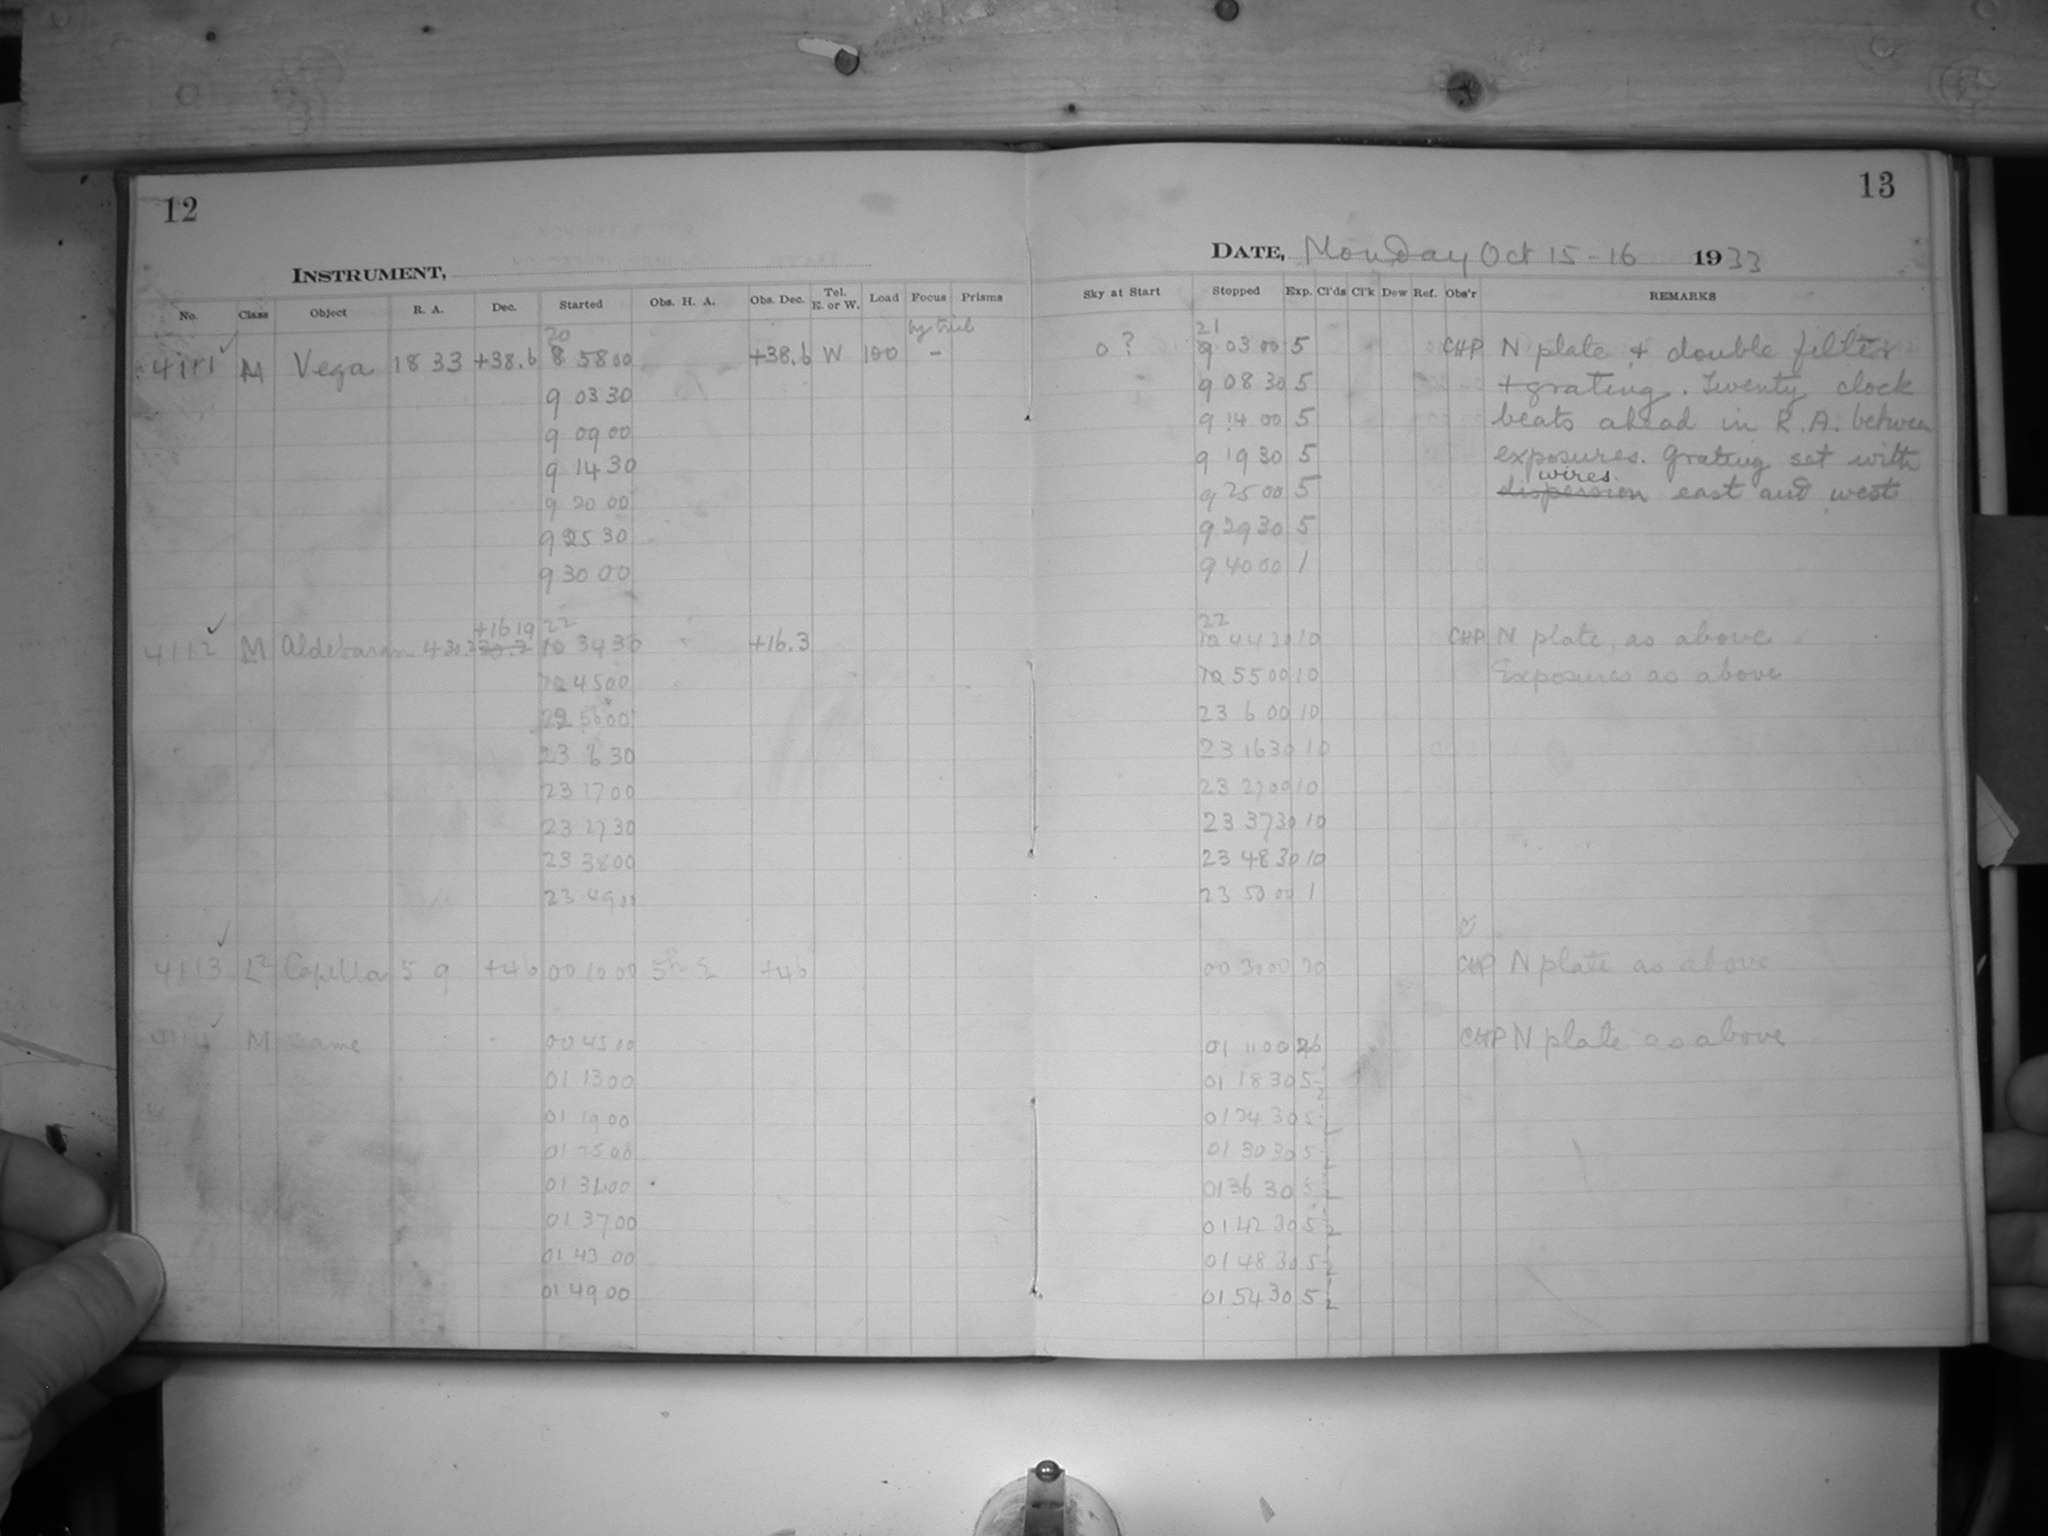 12
INSTRUMENT,
No. Class Object R. A. Dec. Started Obs. H. A. Obs. Dec. Tel. E. or W. Load Focus Prisms
20 by trial
4111 M Vega 18 33 +38.6 8 58 00 +38.6 W 100 -
9 03 30
9 09 00
9 14 30
9 20 00
9 25 30
9 30 00
+16 19 22
4112 M Aldebaran 4 30.2 10 34 30 +16.3
10 45 00
22 56 00
23 6 30
23 17 00
23 27 30
23 38 00
23 49 00
4113 L2 Capella 5 9 +46 00 10 00 5h E +46
M Same 00 45 00
01 13 00
01 19 00
01 25 00
01 31 00
01 37 00
01 43 00
01 49 00
13
DATE, Monday Oct 15-16 1933
Sky at Start Stopped Exp. Cl'ds Cl'k Dew Ref. Obs'r REMARKS
21
0 ? 9 03 00 5 CHP N plate + double filter
9 08 30 5 + grating. Twenty clock
9 14 00 5 beats ahead in R.A. between
9 19 30 5 exposures. Grating set with
wires
9 25 00 5 dispersion east and west
9 29 30 5
9 40 00 1
22
10 44 30 10 CHP N plate, as above
10 55 00 10 Exposures as above
23 6 00 10
23 16 30 10
23 27 00 10
23 37 30 10
23 48 30 10
23 50 00 1
00 30 00 20 CHP N plate as above
01 11 00 26 CHP N plate as above
01 18 30 5 1/2
01 24 30 5 1/2
01 30 30 5 1/2
01 36 30 5 1/2
01 42 30 5 1/2
01 48 30 5 1/2
01 54 30 5 1/2